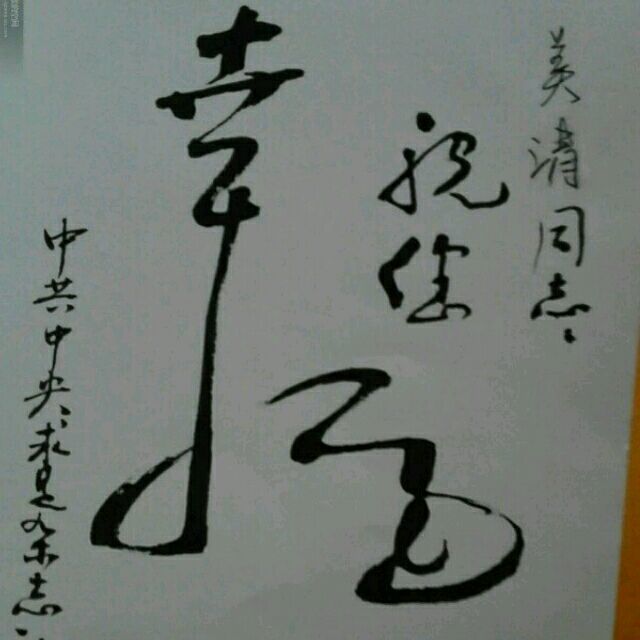 美清同志：
祝您
幸福
中共中央求是杂志